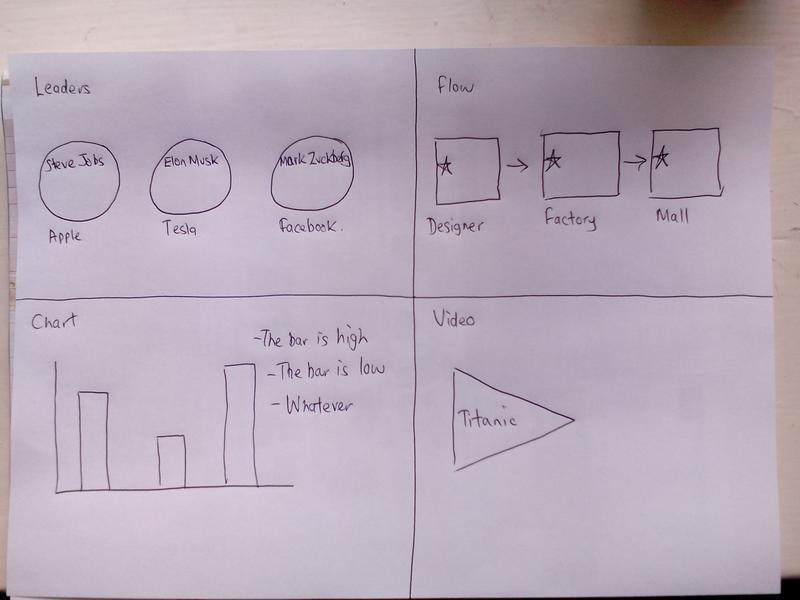 Leaders
Steve Jobs
Elon Musk
Mark Zuckberg
Apple
Tesla
Facebook.
Flow
Designer
Factory
Mall
Chart
-The bar is high
-The bar is low
- Whatever
Video
Titanic